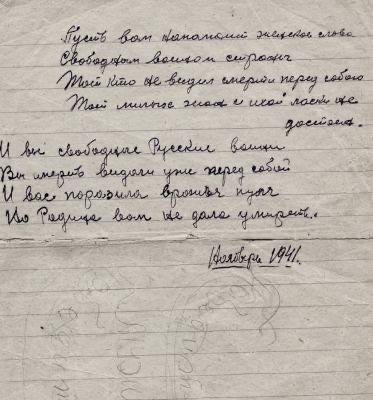 Пусть вам напомнит женское слово
Свободным воином страны
Тот кто не видил смерти перед собою
Тот милые жоны и ихой ласки не
достоен.
И вы свободные Русские воины
Вы смерть видали уже перед собой
И вас поразила вражья пуля
Но Родина вам не дала умереть.
Ноябрь 1941.